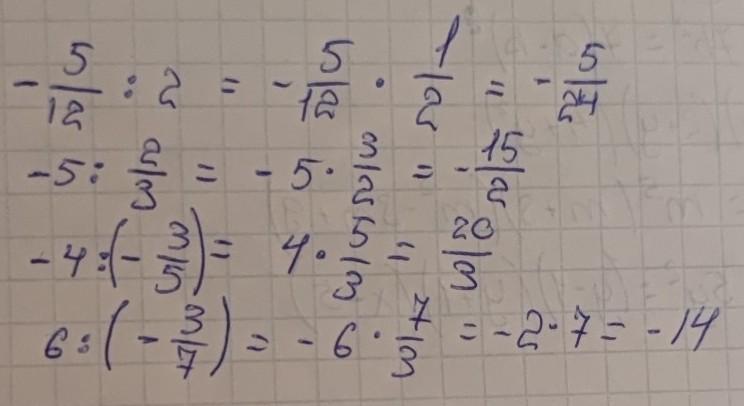 -5/12 : 2 = -5/12 · 1/2 = -5/24
-5 : 2/3 = -5 · 3/2 = -15/2
-4 : (-3/5) = 4 · 5/3 = 20/3
6 : (-3/7) = -6 · 7/3 = -2 · 7 = -14